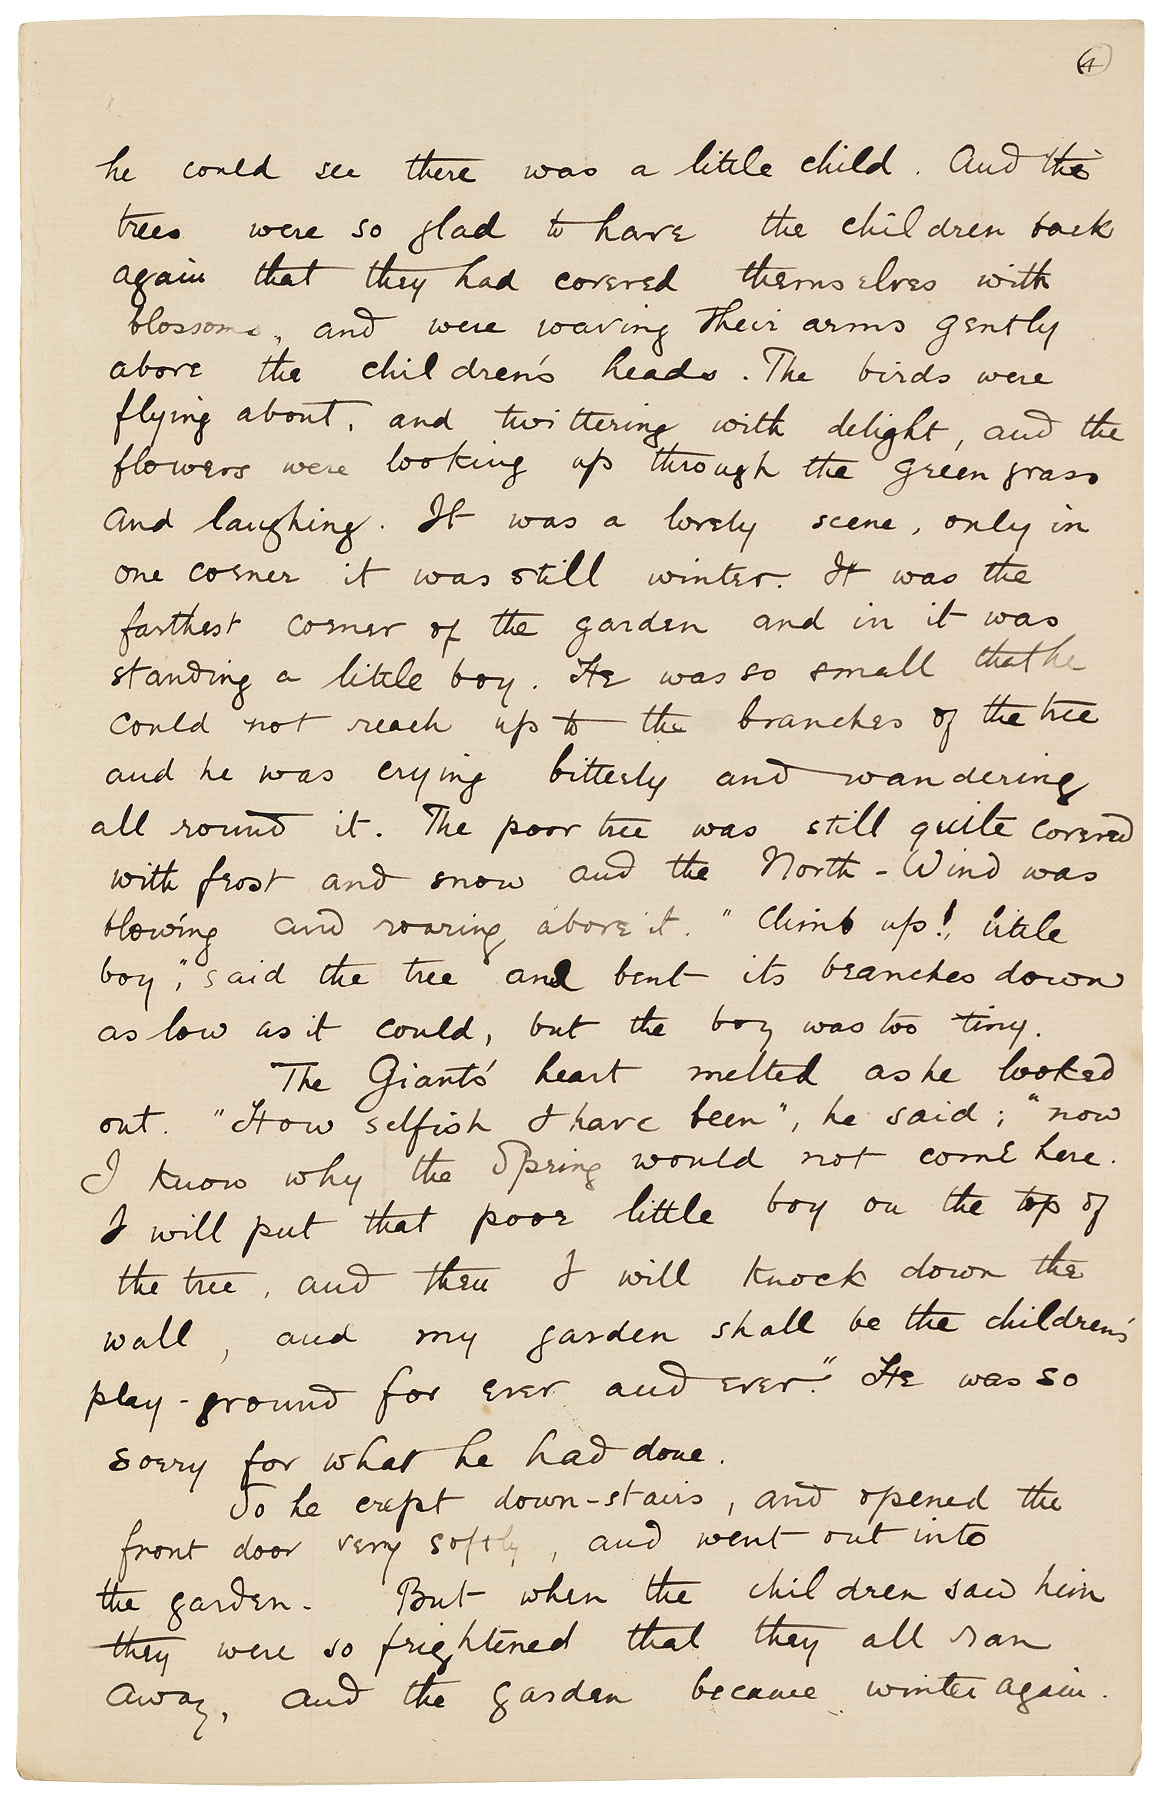 4
he could see there was a little child. And the
trees were so glad to have the children back
again that they had covered themselves with
blossoms, and were waving their arms gently
above the children's heads. The birds were
flying about, and twittering with delight, and the
flowers were looking up through the green grass
and laughing. It was a lovely scene, only in
one corner it was still winter. It was the
farthest corner of the garden and in it was
standing a little boy. He was so small that he
could not reach up to the branches of the tree
and he was crying bitterly and wandering
all round it. The poor tree was still quite covered
with frost and snow and the North-Wind was
blowing and roaring above it. "Climb up!, little
boy", said the tree and bent its branches down
as low as it could, but the boy was too tiny.
The Giant's heart melted as he looked
out. "How selfish I have been", he said; "now
I know why the Spring would not come here.
I will put that poor little boy on the top of
the tree, and then I will knock down the
wall, and my garden shall be the children's
play-ground for ever and ever." He was so
sorry for what he had done.
So he crept down-stairs, and opened the
front door very softly, and went out into
the garden. But when the children saw him
they were so frightened that they all ran
away, and the garden became winter again.